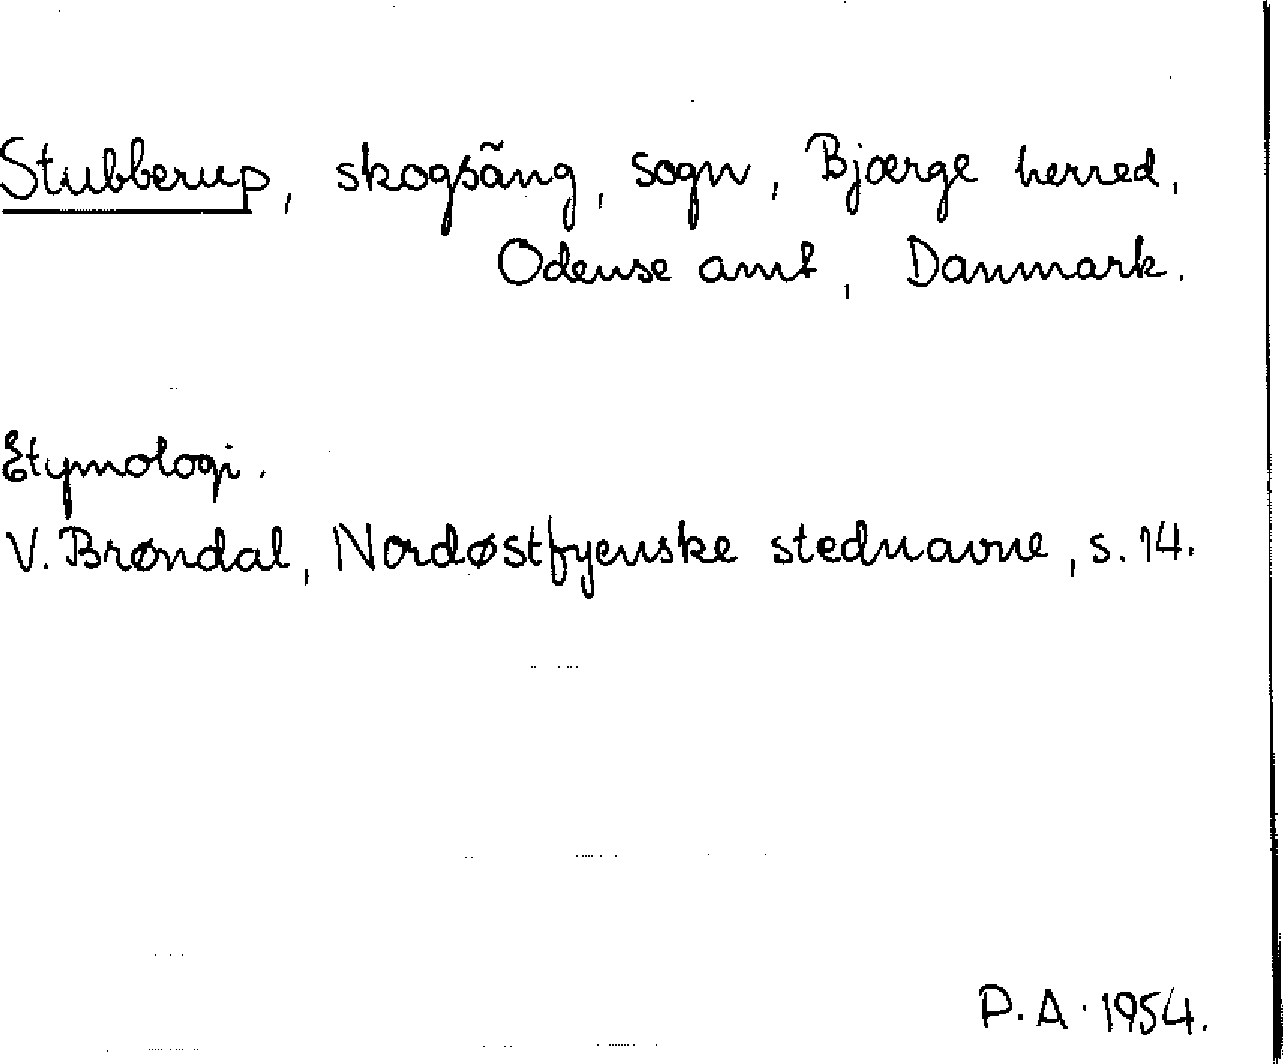 Stubberup, skogsäng, sogn, Bjærge herred,
Odense amt, Danmark.
Etymologi.
V. Brøndal, Nordøstfyenske stednavne, s. 14.
P. A. 1954.